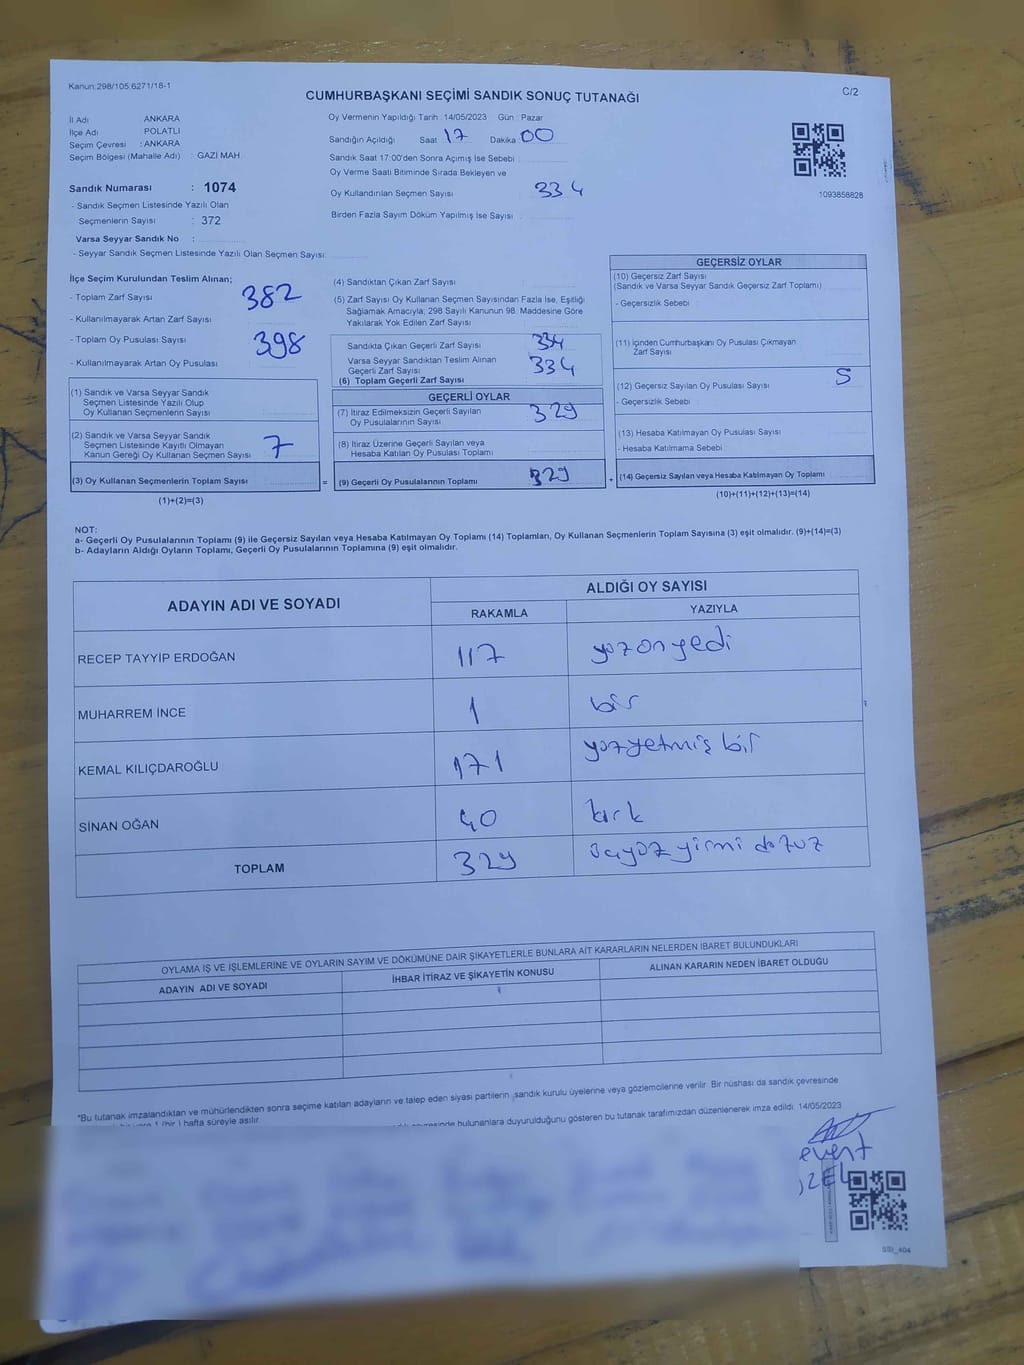 Kanun:298/105:6271/18-1
C/2
CUMHURBAŞKANI SEÇİMİ SANDIK SONUÇ TUTANAĞI
İl Adı ANKARA
İlçe Adı POLATLI
Seçim Çevresi : ANKARA
Seçim Bölgesi (Mahalle Adı) : GAZİ MAH.
Sandık Numarası : 1074
- Sandık Seçmen Listesinde Yazılı Olan
Seçmenlerin Sayısı : 372
Varsa Seyyar Sandık No :
- Seyyar Sandık Seçmen Listesinde Yazılı Olan Seçmen Sayısı:
Oy Vermenin Yapıldığı Tarih : 14/05/2023 Gün : Pazar
Sandığın Açıldığı Saat 17 Dakika 00
Sandık Saat 17:00'den Sonra Açımış İse Sebebi :
Oy Verme Saati Bitiminde Sırada Bekleyen ve
Oy Kullandırılan Seçmen Sayısı 334
Birden Fazla Sayım Döküm Yapılmış İse Sayısı :
1093858828
İlçe Seçim Kurulundan Teslim Alınan;
- Toplam Zarf Sayısı 382
- Kullanılmayarak Artan Zarf Sayısı
- Toplam Oy Pusulası Sayısı 398
- Kullanılmayarak Artan Oy Pusulası
(1) Sandık ve Varsa Seyyar Sandık
Seçmen Listesinde Yazılı Olup
Oy Kullanan Seçmenlerin Sayısı
(2) Sandık ve Varsa Seyyar Sandık
Seçmen Listesinde Kayıtlı Olmayan
Kanun Gereği Oy Kullanan Seçmen Sayısı 7
(3) Oy Kullanan Seçmenlerin Toplam Sayısı =
(1)+(2)=(3)
(4) Sandıktan Çıkan Zarf Sayısı :
(5) Zarf Sayısı Oy Kullanan Seçmen Sayısından Fazla İse, Eşitliği
Sağlamak Amacıyla; 298 Sayılı Kanunun 98. Maddesine Göre
Yakılarak Yok Edilen Zarf Sayısı
Sandıkta Çıkan Geçerli Zarf Sayısı 334
Varsa Seyyar Sandıktan Teslim Alınan
Geçerli Zarf Sayısı 334
(6) Toplam Geçerli Zarf Sayısı
GEÇERLİ OYLAR
(7) İtiraz Edilmeksizin Geçerli Sayılan
Oy Pusulalarının Sayısı 329
(8) İtiraz Üzerine Geçerli Sayılan veya
Hesaba Katılan Oy Pusulası Toplamı
(9) Geçerli Oy Pusulalarının Toplamı 329 +
GEÇERSİZ OYLAR
(10) Geçersiz Zarf Sayısı
(Sandık ve Varsa Seyyar Sandık Geçersiz Zarf Toplamı)
- Geçersizlik Sebebi
(11) İçinden Cumhurbaşkanı Oy Pusulası Çıkmayan
Zarf Sayısı
(12) Geçersiz Sayılan Oy Pusulası Sayısı 5
- Geçersizlik Sebebi
(13) Hesaba Katılmayan Oy Pusulası Sayısı
- Hesaba Katılmama Sebebi
(14) Geçersiz Sayılan veya Hesaba Katılmayan Oy Toplamı
(10)+(11)+(12)+(13)=(14)
NOT:
a- Geçerli Oy Pusulalarının Toplamı (9) ile Geçersiz Sayılan veya Hesaba Katılmayan Oy Toplamı (14) Toplamları, Oy Kullanan Seçmenlerin Toplam Sayısına (3) eşit olmalıdır. (9)+(14)=(3)
b- Adayların Aldığı Oyların Toplamı, Geçerli Oy Pusulalarının Toplamına (9) eşit olmalıdır.
ADAYIN ADI VE SOYADI ALDIĞI OY SAYISI
RAKAMLA YAZIYLA
RECEP TAYYİP ERDOĞAN 117 yüzonyedi
MUHARREM İNCE 1 bir
KEMAL KILIÇDAROĞLU 171 yüzyetmiş bir
SİNAN OĞAN 40 kırk
TOPLAM 329 üçyüz yirmi dokuz
OYLAMA İŞ VE İŞLEMLERİNE VE OYLARIN SAYIM VE DÖKÜMÜNE DAİR ŞİKAYETLERLE BUNLARA AİT KARARLARIN NELERDEN İBARET BULUNDUKLARI
ADAYIN ADI VE SOYADI İHBAR İTİRAZ VE ŞİKAYETİN KONUSU ALINAN KARARIN NEDEN İBARET OLDUĞU
"Bu tutanak imzalandıktan ve mühürlendikten sonra seçime katılan adayların ve talep eden siyasi partilerin ,sandık kurulu üyelerine veya gözlemcilerine verilir. Bir nüshası da sandık çevresinde
1 (bir ) hafta süreyle asılır.
bulunanlara duyurulduğunu gösteren bu tutanak tarafımızdan düzenlenerek imza edildi. 14/05/2023
event
ZEL
SSİ_404